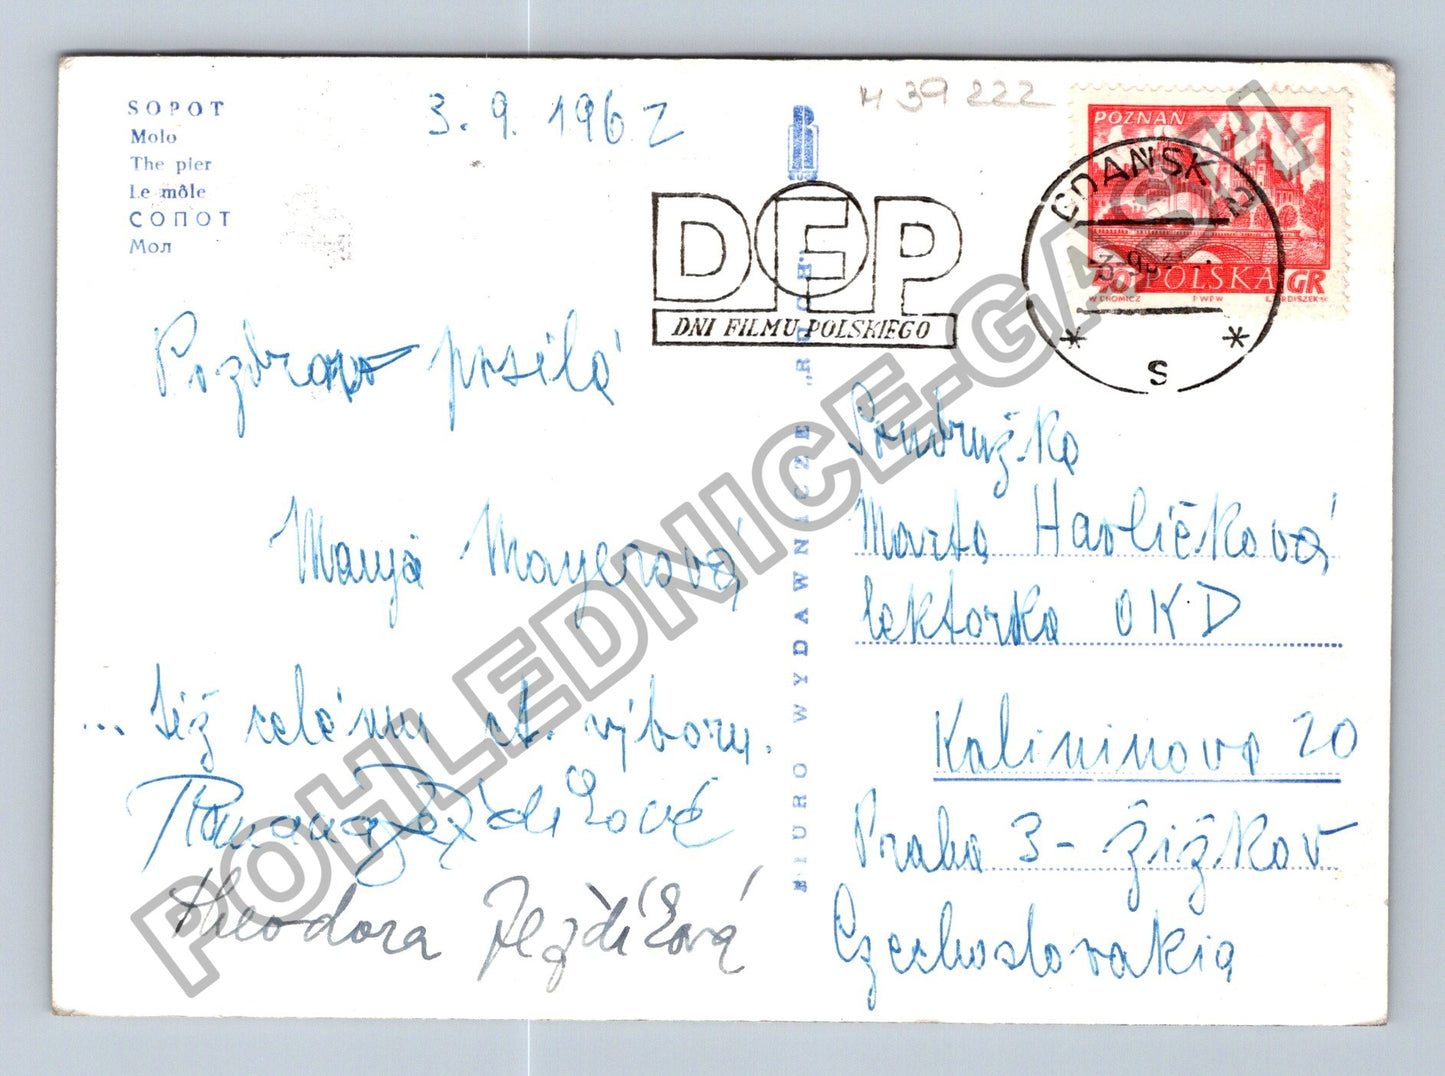 SOPOT
Molo
The pier
Le môle
СОПОТ
Мол
3. 9. 1962
M 39 222
POZNAŃ
40 POLSKA GR
W. CHOMICZ PWPW
GDAŃSK 2
S
DFP
DNI FILMU POLSKIEGO
BIURO WYDAWNICZE „RUCH”
Pozdrav posílá
Manja Mayerová
... též celému st. výboru.
Romana Jezdíková
Theodora Jezdíková
Soudružka
Marta Havlíčková
lektorka OKD
Kalininova 20
Praha 3 - Žižkov
Czechoslovakia
POHLEDNICE-GASH